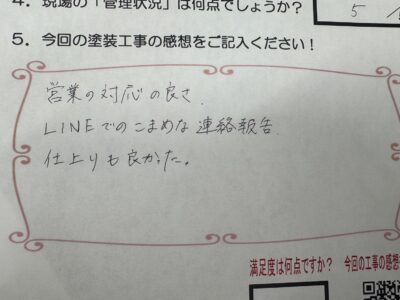 4. 現場の「管理状況」は何点でしょうか?
5
5. 今回の塗装工事の感想をご記入ください!
営業の対応の良さ.
LINEでのこまめな連絡報告.
仕上りも良かった。
満足度は何点ですか? 今回の工事の感想